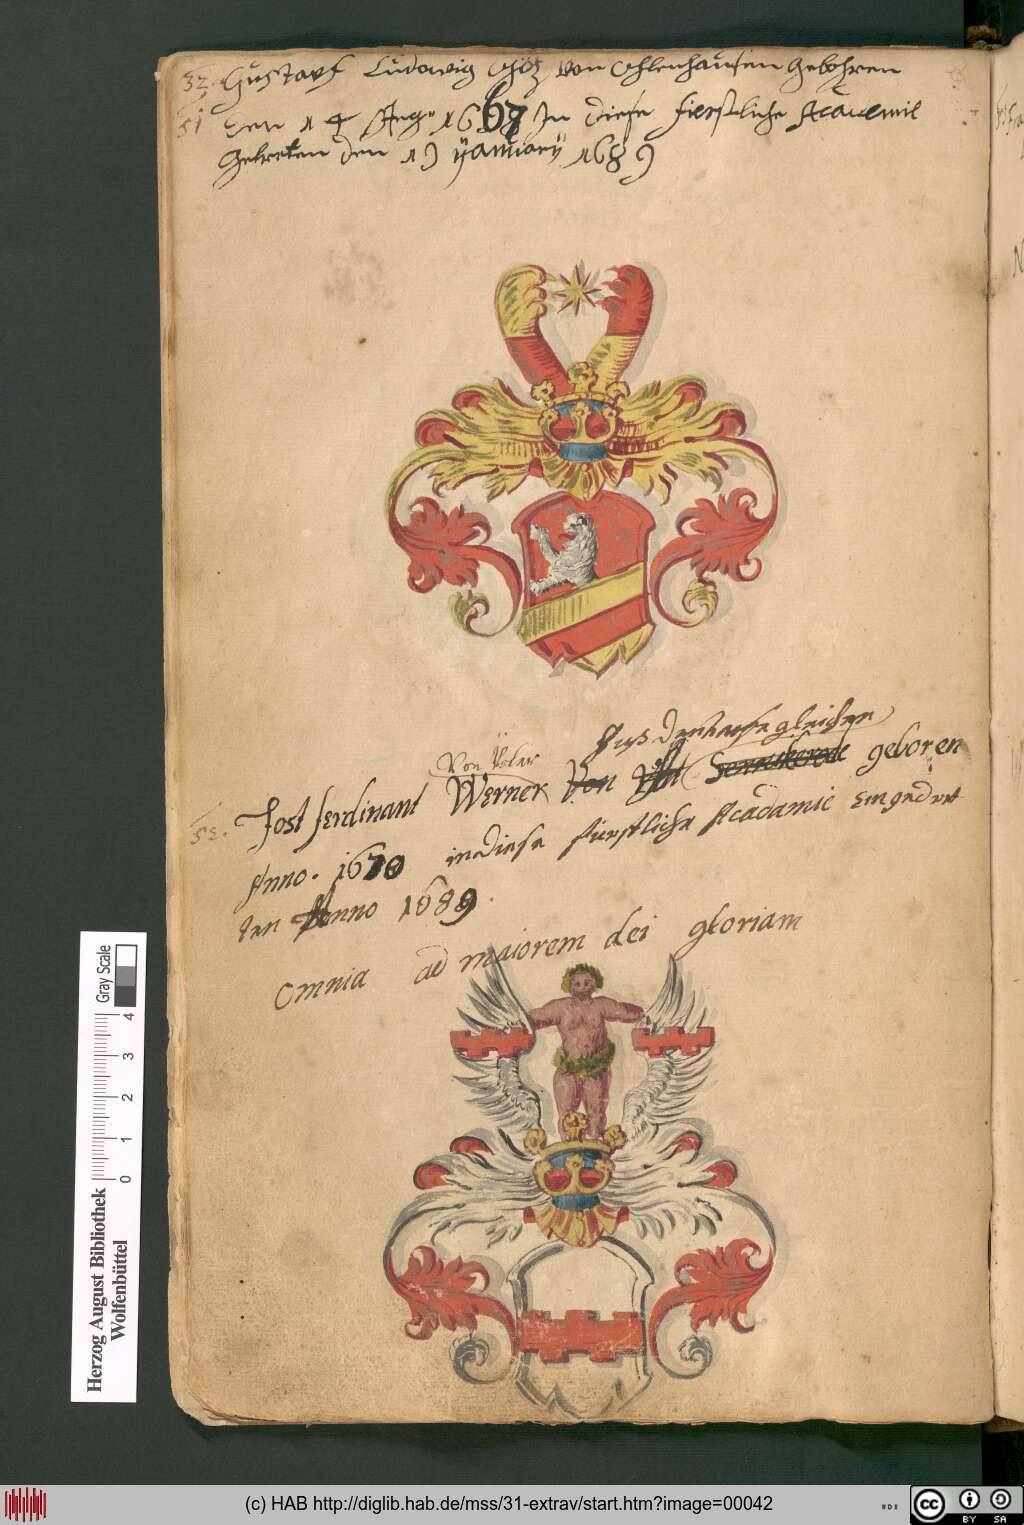 32 Gustaff Ludowig Götz von Ohlenhausen Gebohren
51 den 14 Aug: 1667 In diese fürstliche Academie
Getreten den 19 ÿanuarÿ 1689
Auß denhausse gleichen
Von
52. Jost ferdinant Werner Von geboren
Anno. 1670 in diese fürstliche Academie
den Anno 1689.
Omnia ad maiorem dei gloriam
Gray Scale
0 1 2 3 4
Herzog August Bibliothek
Wolfenbüttel
(c) HAB http://diglib.hab.de/mss/31-extrav/start.htm?image=00042
cc BY SA